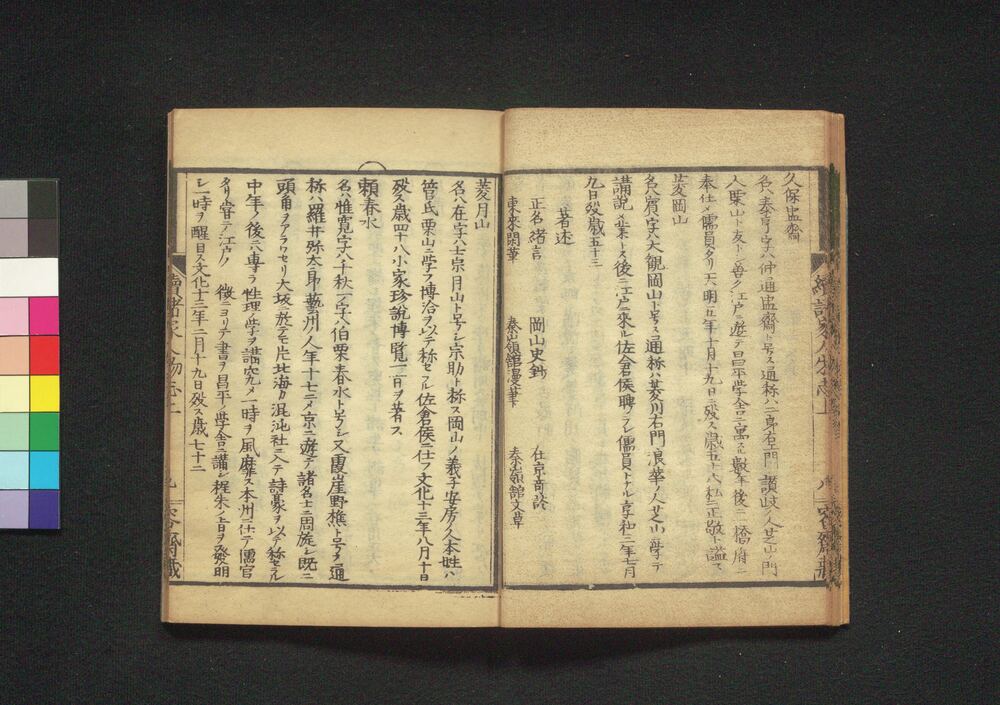 久保盅齋
名ハ泰亨字ハ仲通盅齋ト号ス通称ハ二郎右ェ門讃岐ノ人芝山ノ門
人栗山ト友トシ善ク江戸ニ遊テ昌平学舎ニ寓スル數年後ニ一橋府ニ
奉仕メ儒員タリ天明五年十月十九日ニ殁ス歳五十八私ニ正敬ト謚ス
菱岡山
名ハ賓字ハ大觀岡山ト号ス通称ハ菱川右門浪華ノ人芝山ニ學テ
講説ヲ業トス後ニ江戸ニ來ル佐倉侯聘ソレ儒員トナル享和三年七月
九日殁歳五十三
著述
正名緒言 岡山史鈔 在京奇談
東來閑筆 秦嶺舘漫筆 秦嶺舘文草
菱月山
名ハ在字ハ士宗月山ト号シ宗助ト称ス岡山ノ義子安房ノ人本姓ハ
菅氏栗山ニ学フ博洽ヲ以テ称セラル佐倉侯ニ仕フ文化十三年八月十日
殁ス歳四十八小家珍說博覧一百ヲ著ス
頼春水
名ハ惟寛字ハ千秋一ノ字ハ伯栗春水ト号シ又霞崖野樵ト号ス通
称ハ羅井弥太郎藝州ノ人年十七ニメ京ニ遊テ諸名士ニ周旋シ既ニ
頭角ヲアラワセリ大坂ニ遊テモ片北海カ混沌社ニ入テ詩豪ヲ以テ称セラル
中年ノ後ニハ專ラ性理ノ学ヲ講究メ一時ヲ風靡ス本州ニ仕テ儒官
タリ嘗テ江戸ノ徴ニヨリテ書ヲ昌平ノ学舎ニ講シ程朱ノ旨ヲ發明
シ一時ヲ醒目ス文化十三年二月十九日殁ス歳七十二
續諸家人物志上
八
續諸家人物志上
九